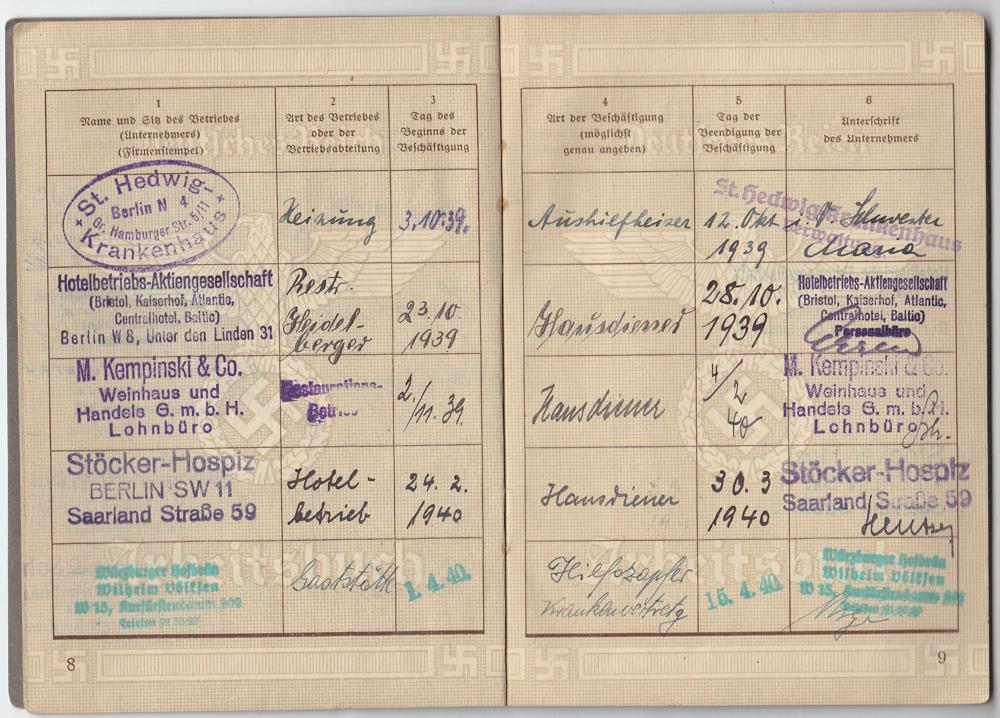 1
Name und Sitz des Betriebes
(Unternehmers)
(Firmenstempel)
2
Art des Betriebes
oder der
Betriebsabteilung
3
Tag des
Beginns der
Beschäftigung
4
Art der Beschäftigung
(möglichst
genau angeben)
5
Tag der
Beendigung der
Beschäftigung
6
Unterschrift
des Unternehmers
St. Hedwig-
Berlin N 4
Gr. Hamburger Str. 5/11
Krankenhaus
Heizung
3.10.39.
Aushilfheizer
12. Okt
1939
St. Hedwig-Krankenhaus
Verwaltung
Schwester
Maria
Hotelbetriebs-Aktiengesellschaft
(Bristol, Kaiserhof, Atlantic,
Centralhotel, Baltic)
Berlin W 8, Unter den Linden 31
Restr.
Heidel-
berger
23.10.
1939
Hausdiener
28.10.
1939
Hotelbetriebs-Aktiengesellschaft
(Bristol, Kaiserhof, Atlantic,
Centralhotel, Baltic)
Personalbüro
M. Kempinski & Co.
Weinhaus und
Handels G. m. b. H.
Lohnbüro
Restaurations-
Betrieb
2./
11. 39.
Hausdiener
4/
2
40
M. Kempinski & Co.
Weinhaus und
Handels G. m. b. H.
Lohnbüro
Stöcker-Hospiz
BERLIN SW 11
Saarland Straße 59
Hotel-
betrieb
24. 2.
1940
Hausdiener
30. 3
1940
Stöcker-Hospiz
Saarland Straße 59
Arbeitsbuch
Würzburger Hofbräu
Wilhelm Völksen
W 15, Kurfürstendamm
Telefon 91
Gaststätte
1. 4. 40.
Hilfszapfer
15. 4. 40.
Würzburger Hofbräu
Wilhelm Völksen
W 15, Kurfürstendamm
Telefon 91
8
9